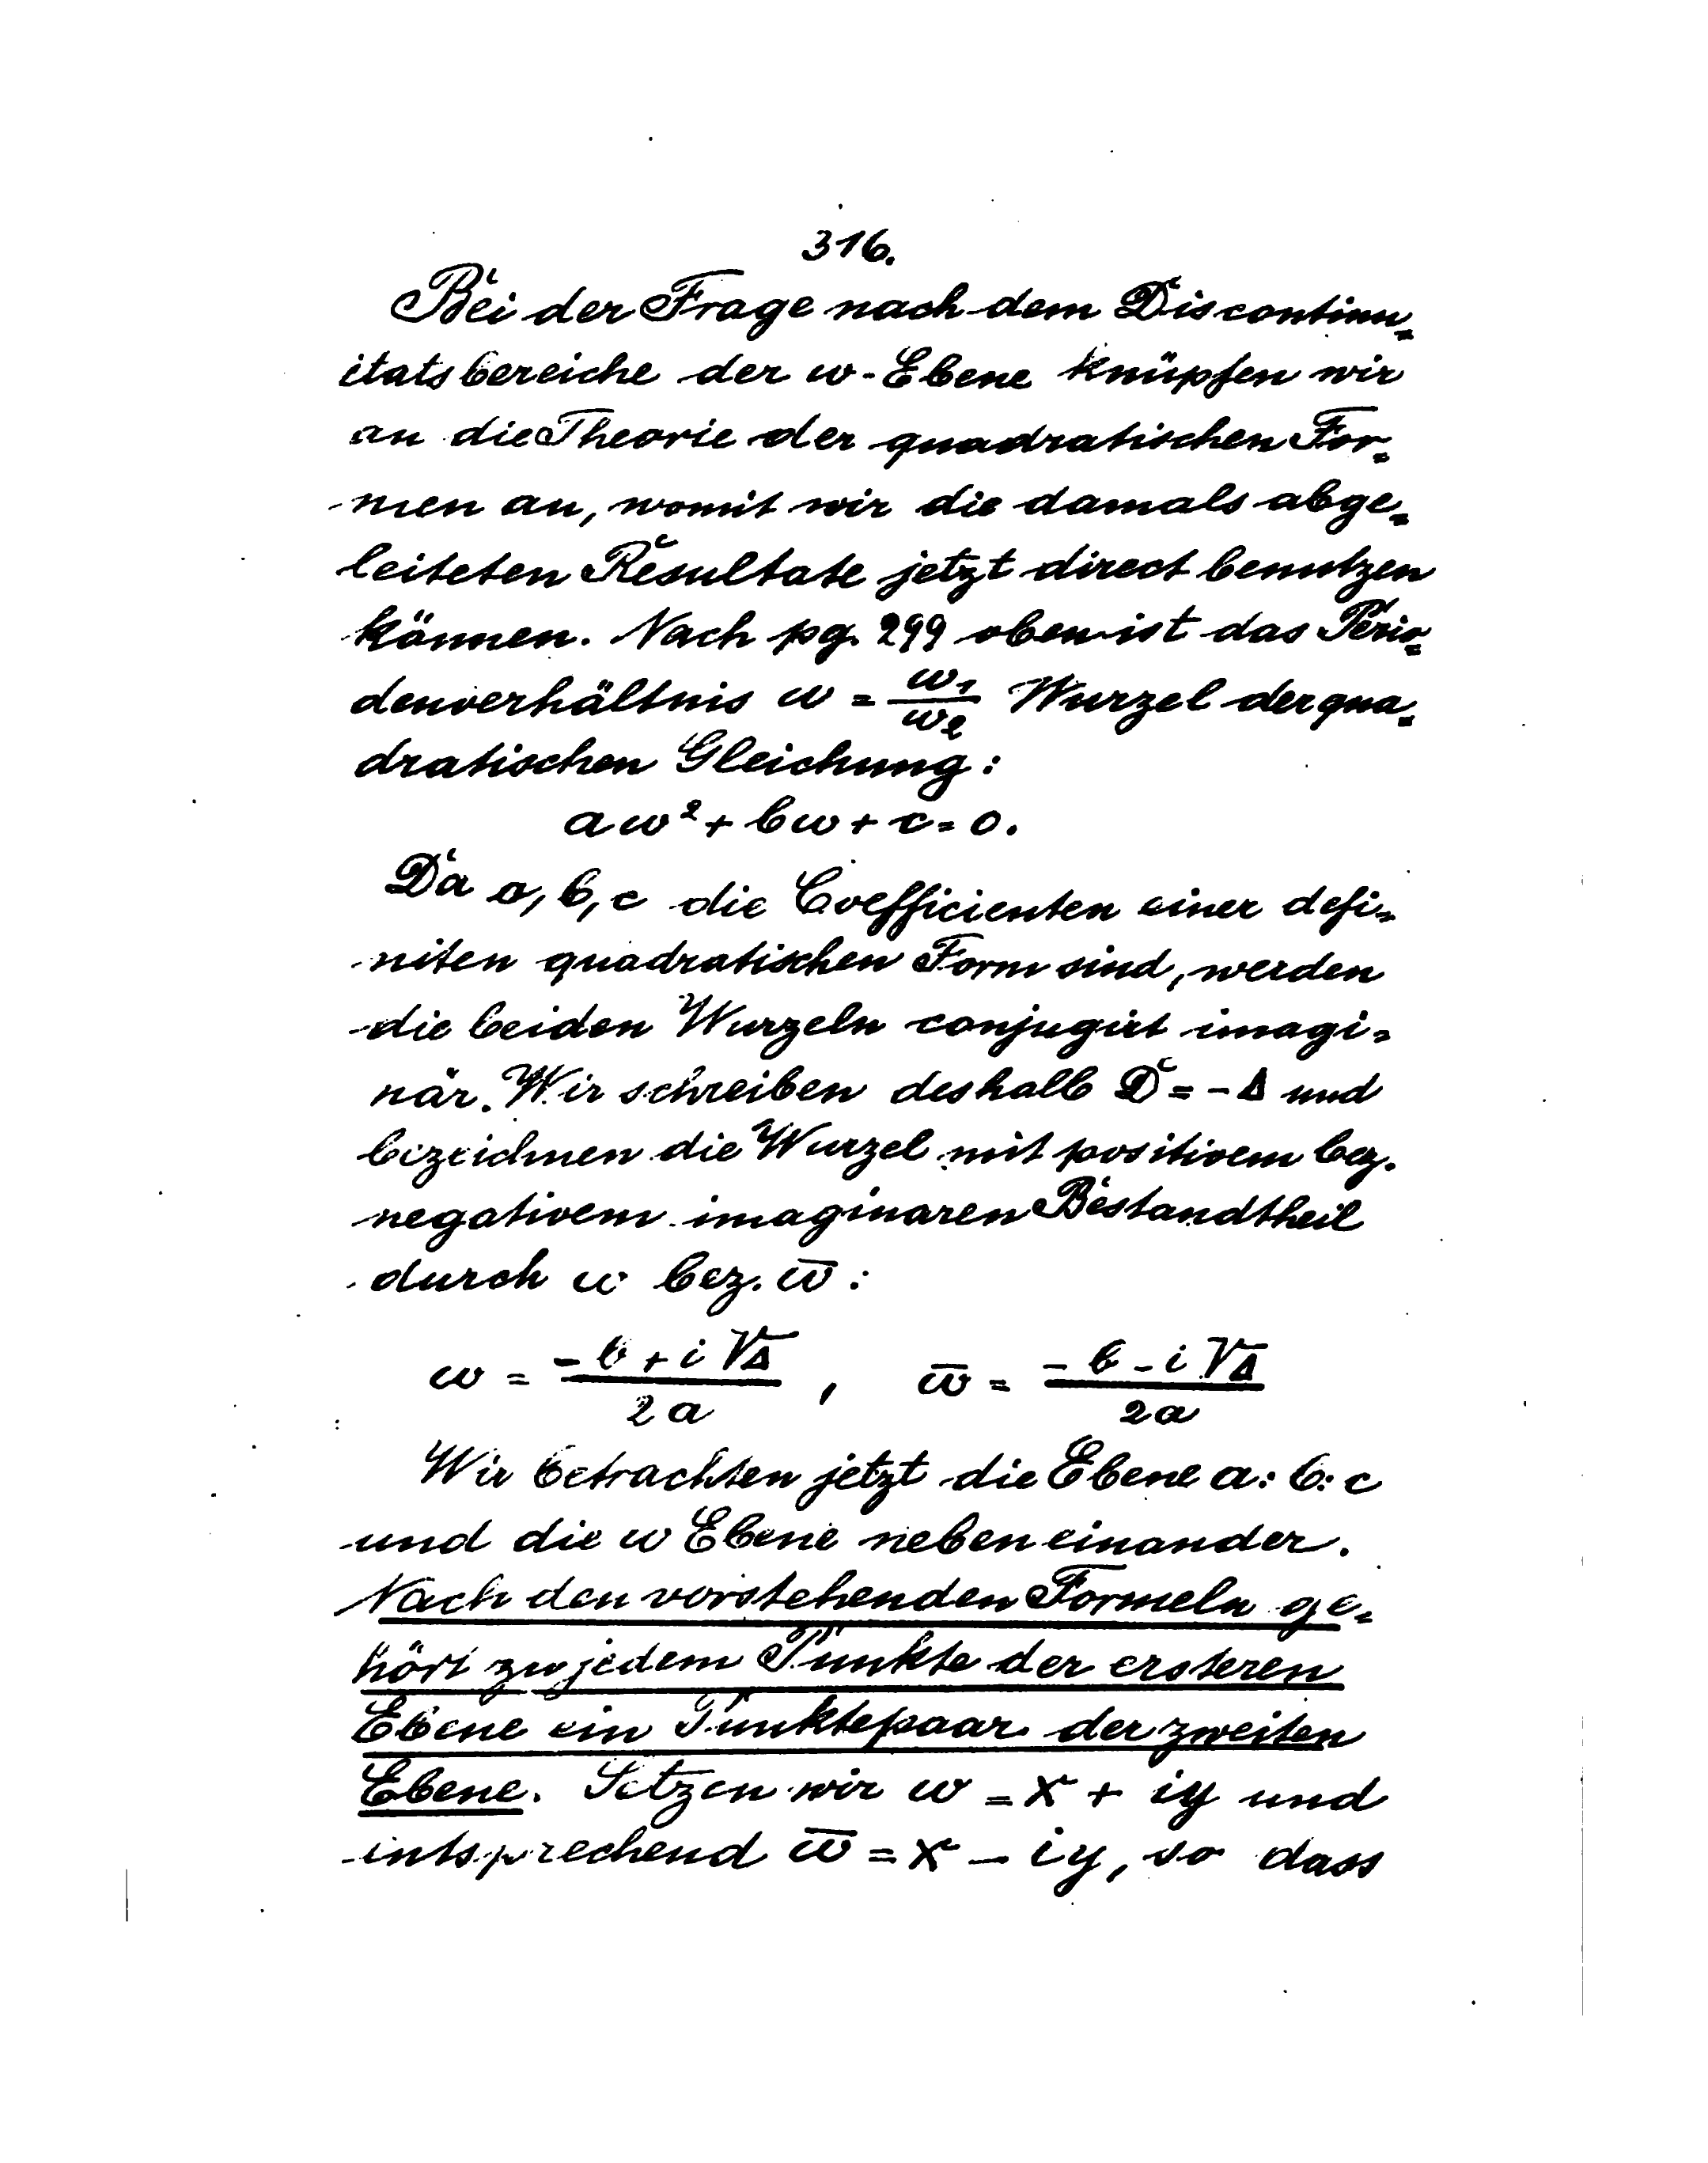 316.
Bei der Frage nach dem Discontinu=
itatsbereiche der ω-Ebene knüpfen wir
an die Theorie der quadratischen For=
men an, womit wir die damals abge=
leiteten Resultate jetzt direct benutzen
können. Nach pg. 299 oben ist das Perio=
denverhältnis ω = ω₁/ω₂ Wurzel der qua=
dratischen Gleichung:
aω² + bω + c = 0.
Da a, b, c die Coefficienten einer defi=
niten quadratischen Form sind, werden
die beiden Wurzeln conjugirt imagi=
när. Wir schreiben deshalb D = -Δ und
bezeichnen die Wurzel mit positivem bez.
negativem imaginaren Bestandtheil
durch ω bez. ω̅:
ω = (-b + i√Δ)/2a , ω̅ = (-b - i√Δ)/2a
Wir betrachten jetzt die Ebene a:b:c
und die ω Ebene neben einander.
Nach den vorstehenden Formeln ge=
hört zu jedem Punkte der ersteren
Ebene ein Punktepaar der zweiten
Ebene. Setzen wir ω = x + iy und
entsprechend ω̅ = x - iy, so dass